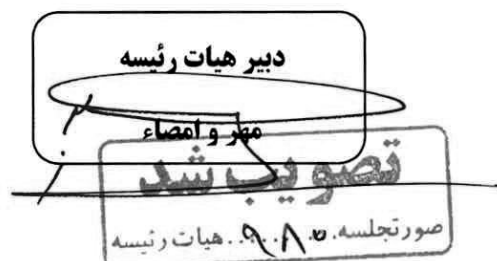 دبیر هیات رئیسه
مهر و امضاء
تصویب شد
صورتجلسه. ۹۸۰. هیات رئیسه